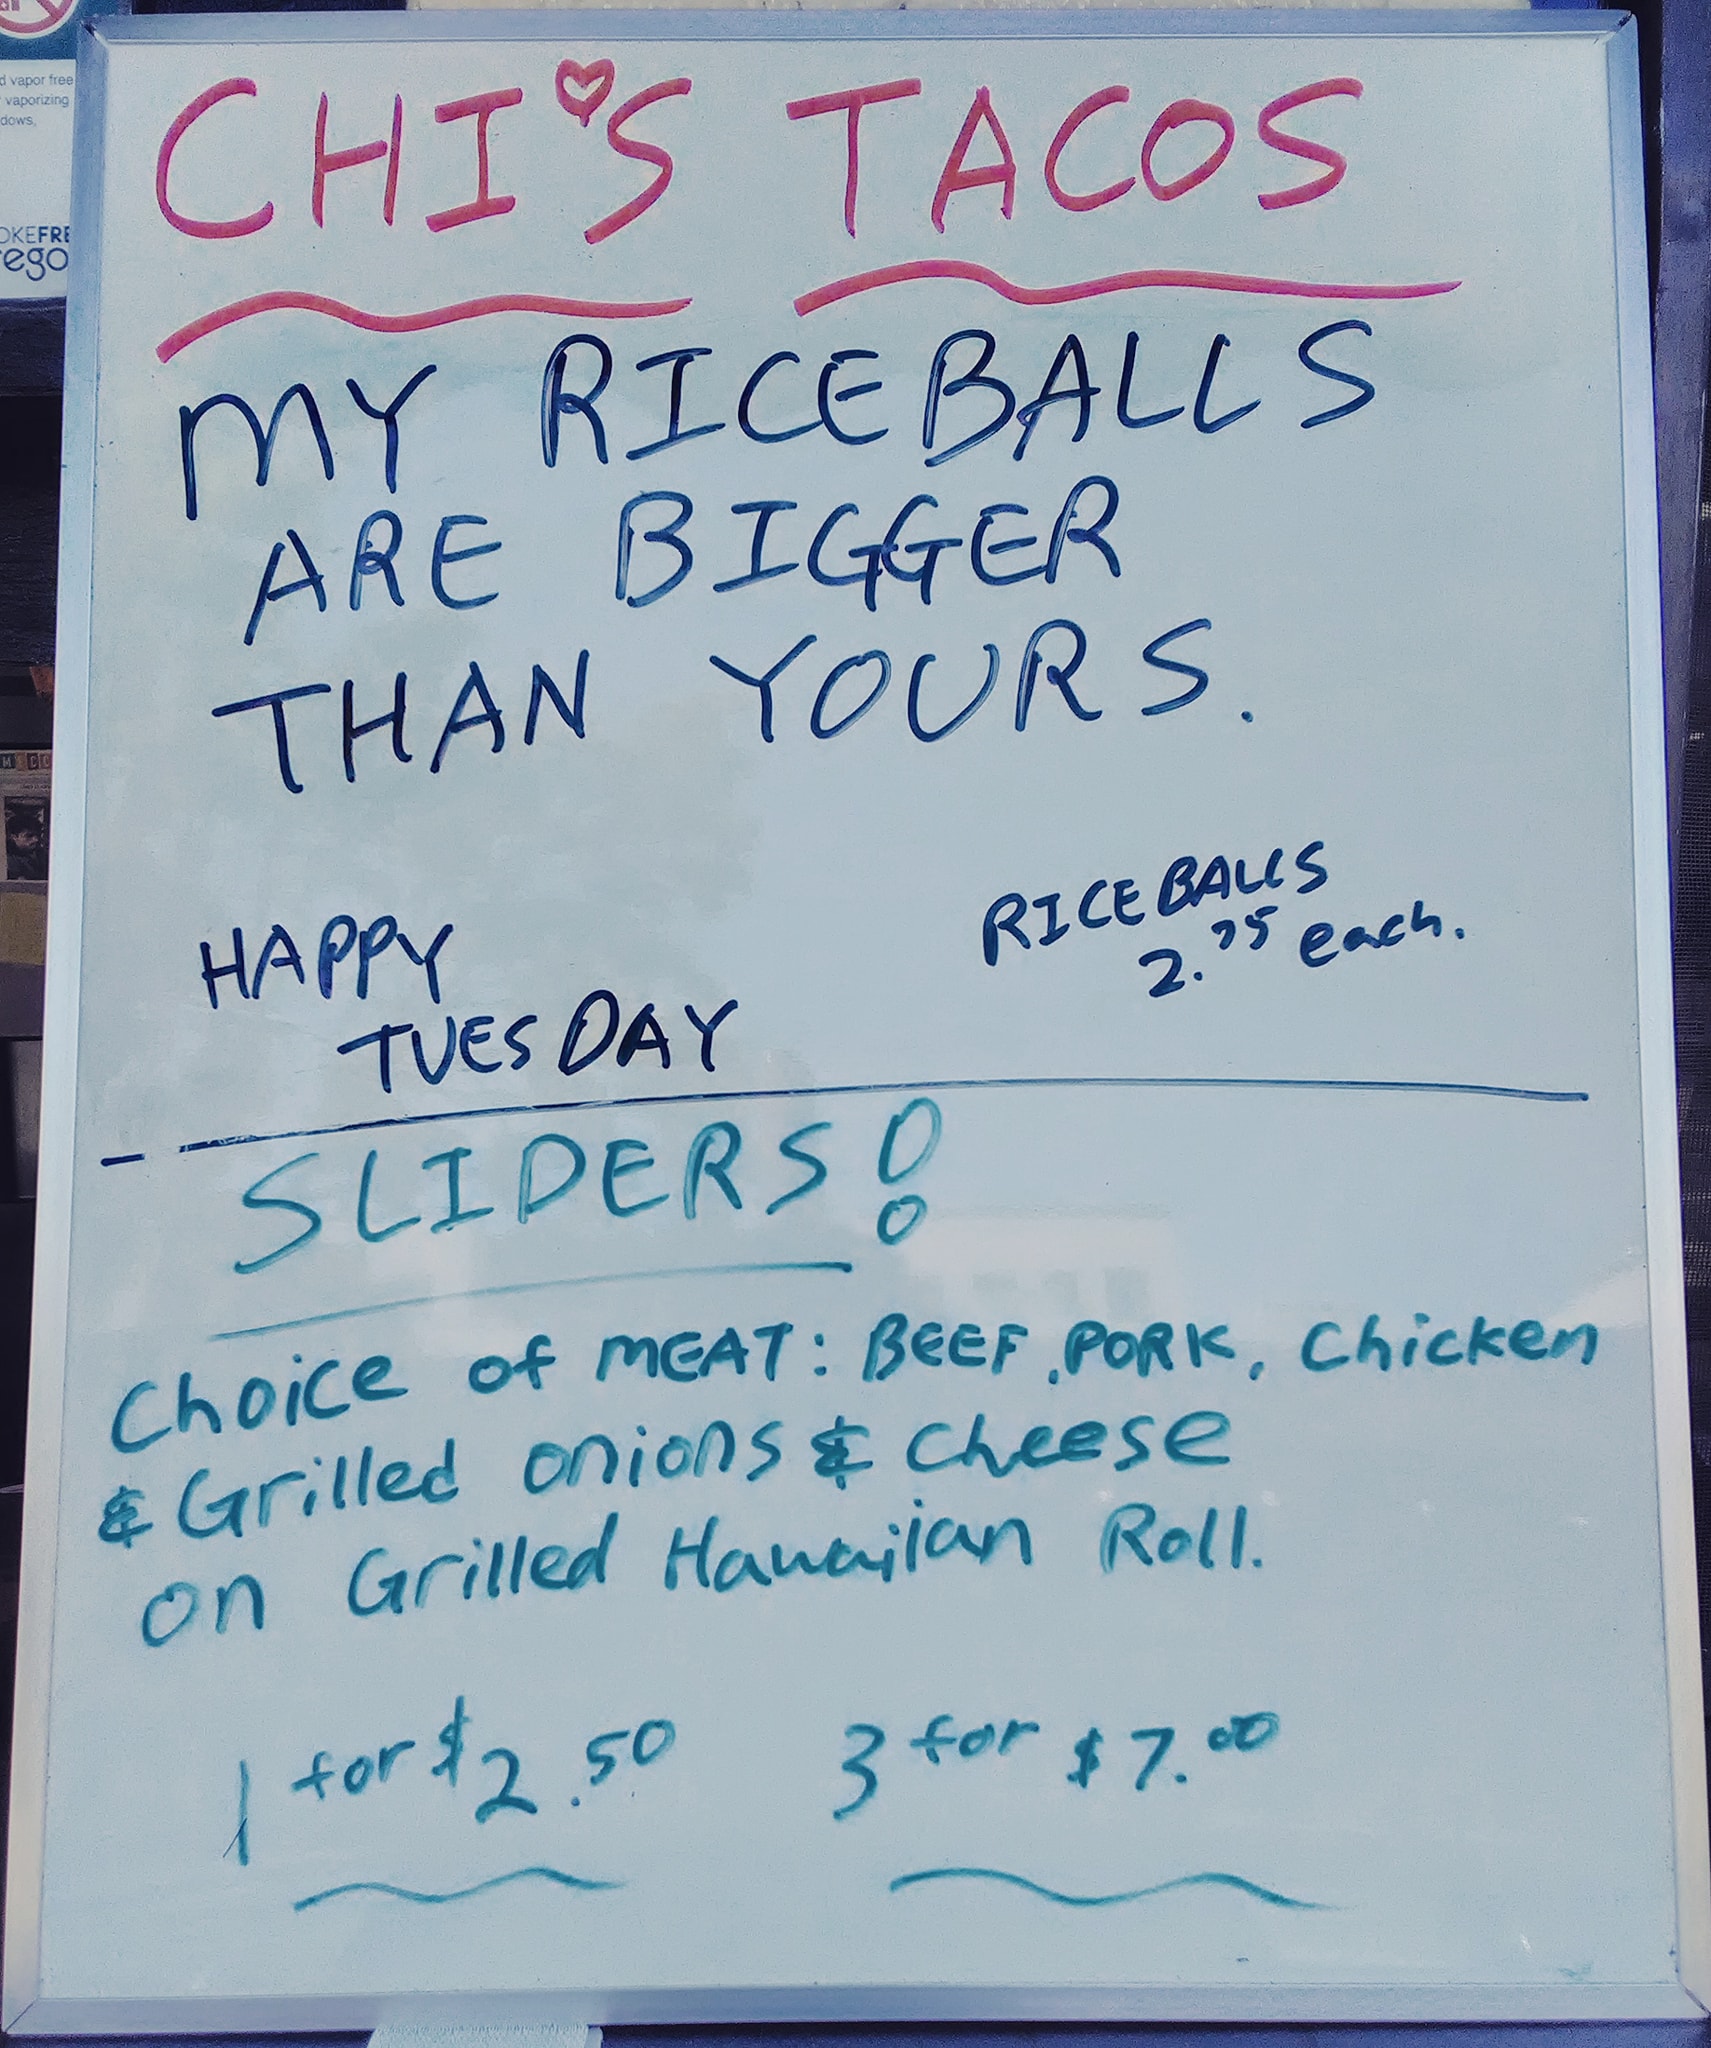 d vapor free
vaporizing
dows,
OKEFRE
rego
CHI'S TACOS
MY RICEBALLS
ARE BIGGER
THAN YOURS.
RICEBALLS
2.75 each.
HAPPY
TUESDAY
SLIDERS!
Choice of MEAT: BEEF, PORK, Chicken
& Grilled onions & cheese
on Grilled Hawaiian Roll.
1 for $2.50 3 for $7.00